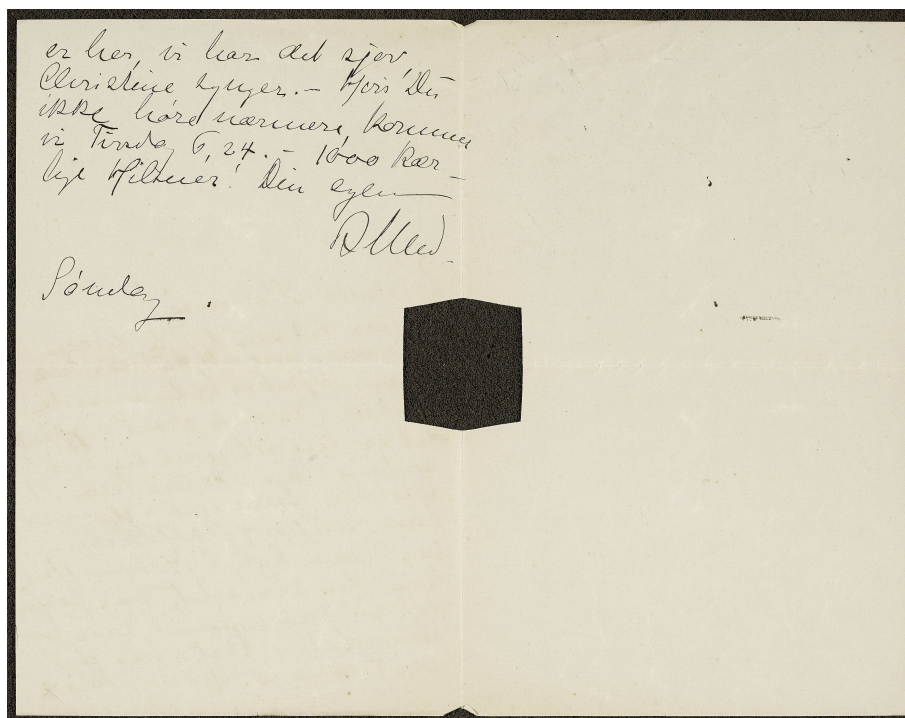 er her, vi har det sjov,
Christine synger. – Hvis Du
ikke hører nærmere, kommer
vi Tirsdag 6,24. – 1000 kær-
lige Hilsner! Din egen
Søndag